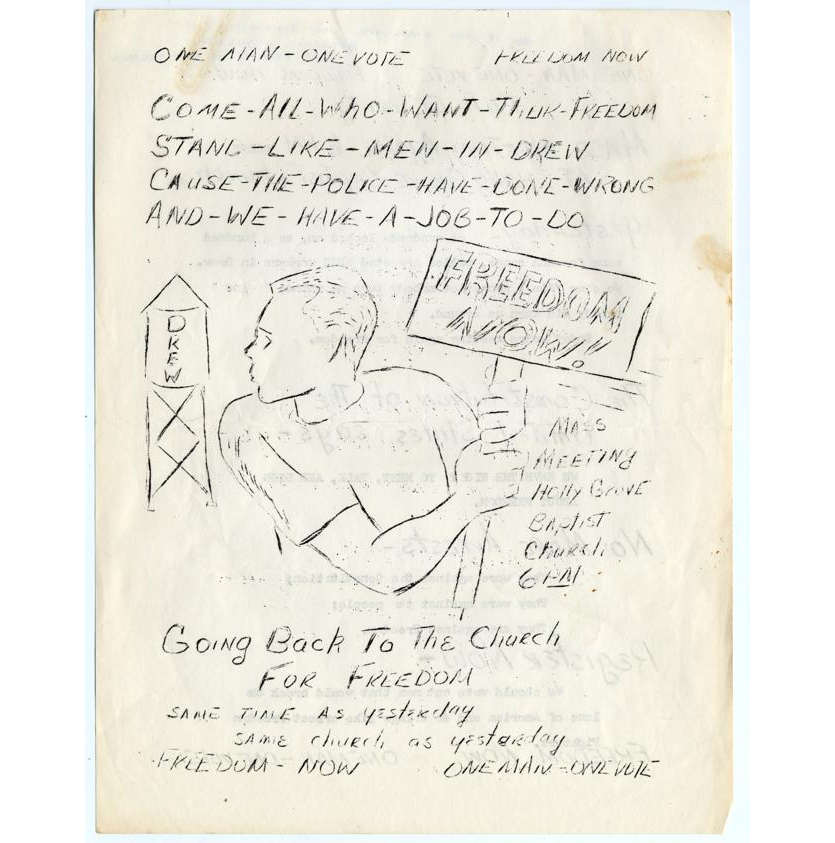 ONE MAN - ONE VOTE FREEDOM NOW
COME - All - Who - WANT - THEIR - FREEDOM
STAND - LIKE - MEN - IN - DREW
CAUSE - THE - POLICE - HAVE - DONE - WRONG
AND - WE - HAVE - A - JOB - TO - DO
FREEDOM
NOW!
DREW
MASS
MEETING
Holly Grove
Baptist
Church
6 PM
Going Back To The Church
FOR FREEDOM
SAME TIME AS yesterday
SAME church as yesterday
FREEDOM - NOW ONE MAN - ONE VOTE